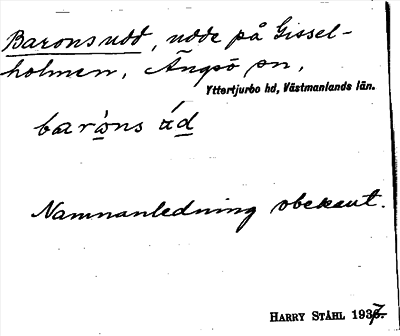 Baronsudd, udde på Gissel-
holmen, Ängsö sn,
Yttertjurbo hd, Västmanlands län.
barò̱ns úḏ
Namnanledning obekant.
HARRY STÅHL 1937.